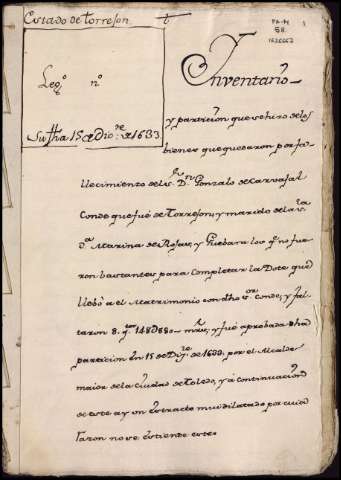 Estado de Torrejon
t
PA-M
58
Leg.º n.º
Su fha 15 de Diz.re de 1633
Inventario
y particion que se hizo de los
bienes que quedaron por fa-
llecimiento del S.r D.n Gonzalo de Carvajal
Conde que fué de Torrejon, y marido de la S.ra
D.a Marina de Rojas, y Guebara los q.e no fue
ron bastantes para completar la Dote que
llebó a el Matrimonio con dho S.or conde, y fal-
taron 8. q.tos 148D880 mrs, y fué aprobada dha
particion En 15 de Diz.re de 1633, por el Alcalde
maior de la ciudad de Toledo, y á continuacion
de este ay un extracto mui dilatado
este